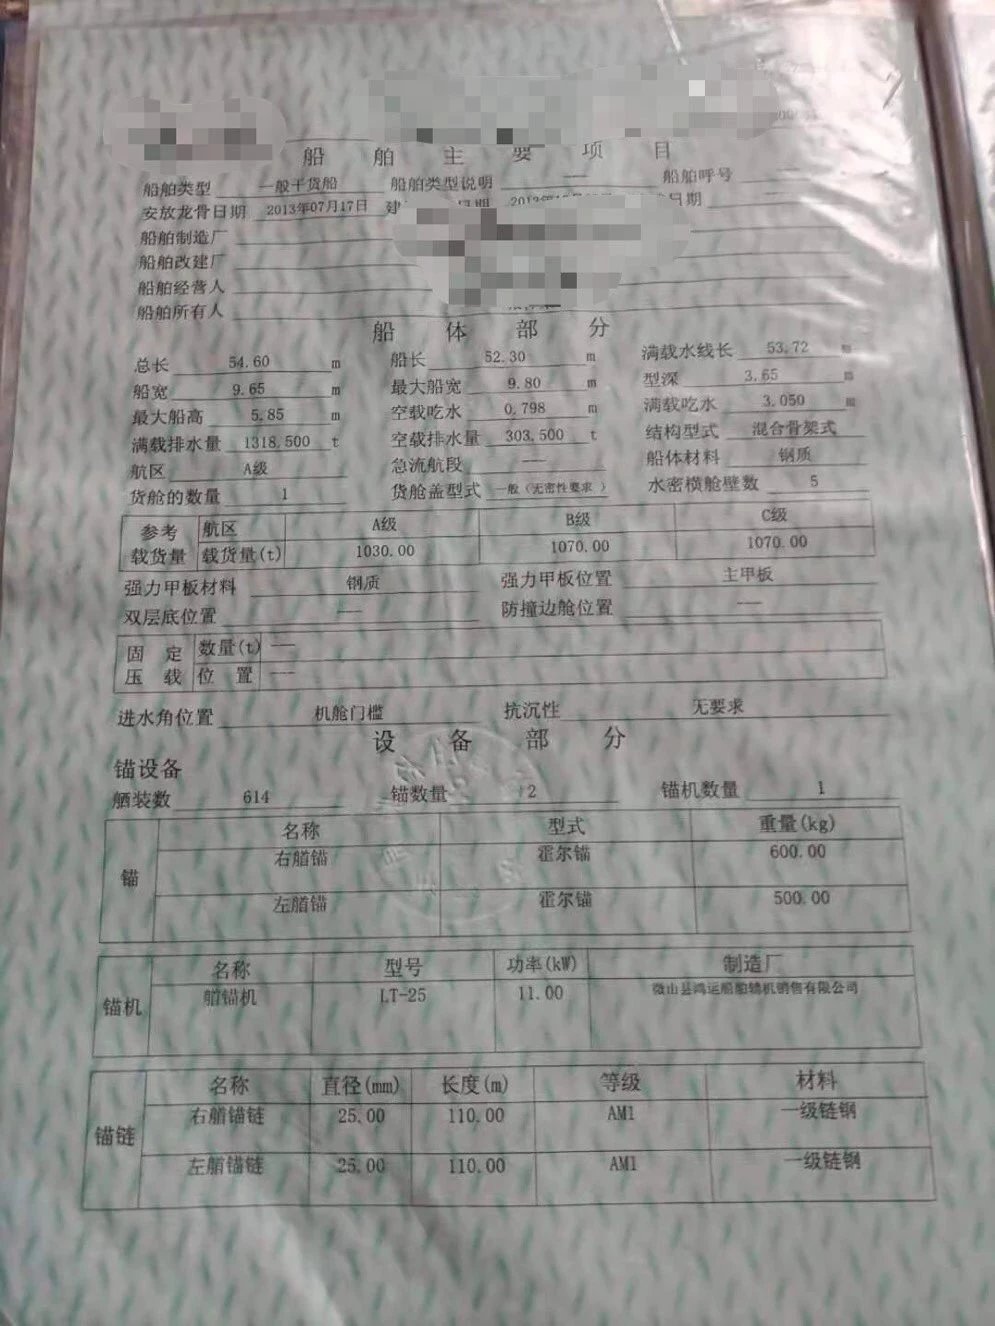 船舶主要项目
船舶类型 一般干货船 船舶类型说明 --- 船舶呼号
安放龙骨日期 2013年07月17日 建 日期
船舶制造厂
船舶改建厂
船舶经营人
船舶所有人
船体部分
总长 54.60 m 船长 52.30 m 满载水线长 53.72 m
船宽 9.65 m 最大船宽 9.80 m 型深 3.65 m
最大船高 5.85 m 空载吃水 0.798 m 满载吃水 3.050 m
满载排水量 1318.500 t 空载排水量 303.500 t 结构型式 混合骨架式
航区 A级 急流航段 --- 船体材料 钢质
货舱的数量 1 货舱盖型式 一般(无密性要求) 水密横舱壁数 5
参考载货量 航区 A级 B级 C级
载货量(t) 1030.00 1070.00 1070.00
强力甲板材料 钢质 强力甲板位置 主甲板
双层底位置 --- 防撞边舱位置 ---
固定压载 数量(t) ---
位置 ---
进水角位置 机舱门槛 抗沉性 无要求
设备部分
锚设备
舾装数 614 锚数量 2 锚机数量 1
锚 名称 型式 重量(kg)
右艏锚 霍尔锚 600.00
左艏锚 霍尔锚 500.00
锚机 名称 型号 功率(kW) 制造厂
艏锚机 LT-25 11.00 微山县鸿运船舶辅机销售有限公司
锚链 名称 直径(mm) 长度(m) 等级 材料
右艏锚链 25.00 110.00 AM1 一级链钢
左艏锚链 25.00 110.00 AM1 一级链钢